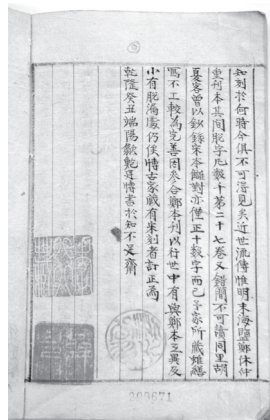 知刻於何時今俱不可得見矣近世流傳惟明末海鹽鄭休仲
重刊本其間脫字凡數千第二十七卷又錯簡不可讀同里胡
夏客曾以鈔錄宋本讎對亦僅正十數字而已予家所藏雖繕
寫不工較為完善因參合鄭本刊以行世中有與鄭本互異及
小有脫漏處仍俟博古家藏有宋刻者訂正焉
乾隆癸丑端陽歙鮑廷博書於知不足齋
209671